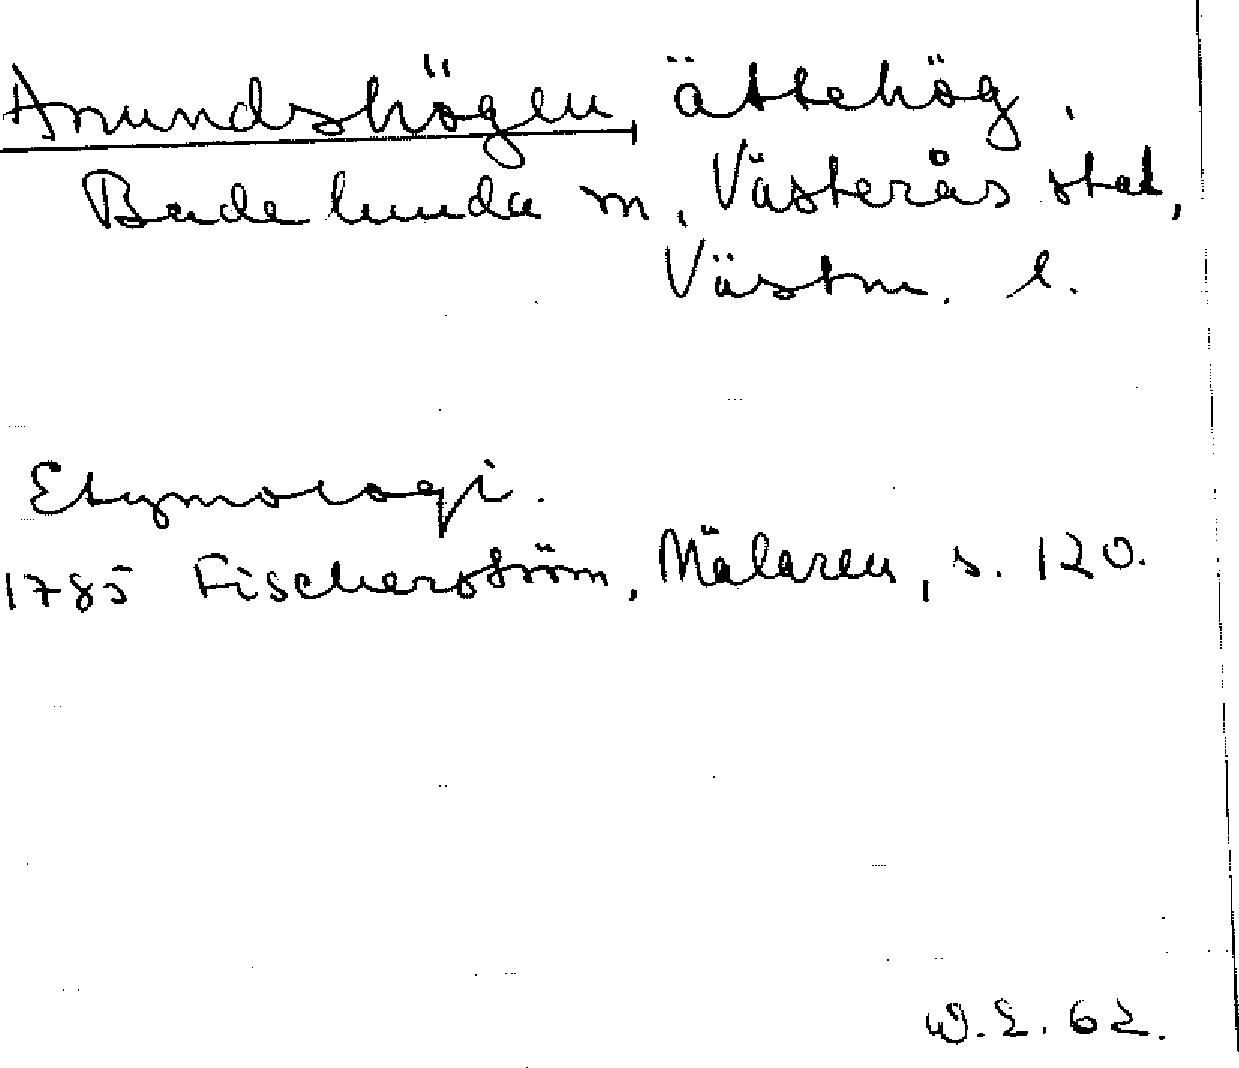 Anundshögen, ättehög,
Badelunda sn, Västerås stad,
Västm. l.
Etymologi.
1785 Fischerström, Mälaren, s. 120.
W.E. 62.